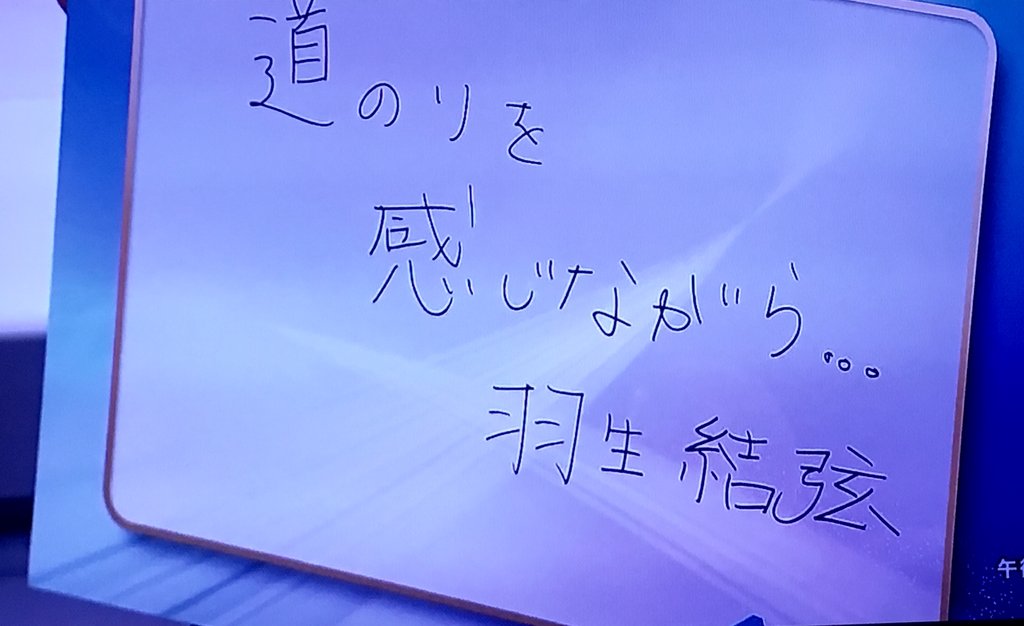 道のりを
感じながら...
羽生結弦
午